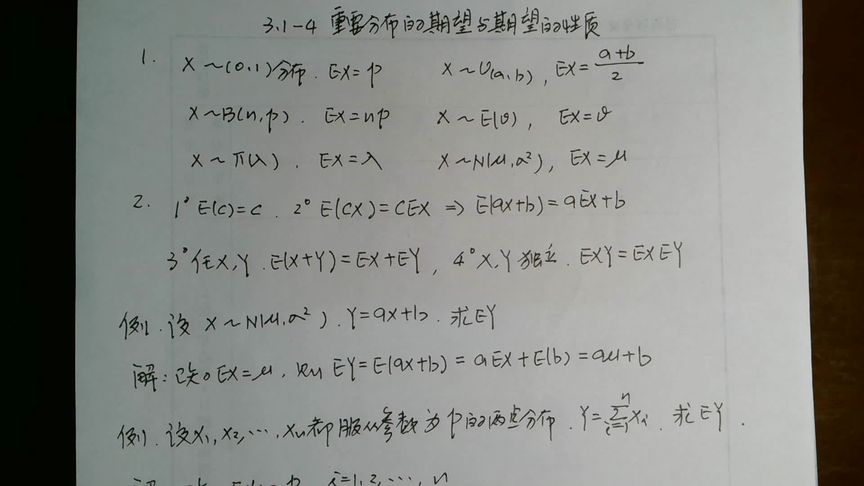 3.1-4 重要分布的期望与期望的性质
1. X~(0,1)分布. EX=p X~U(a,b), EX=\frac{a+b}{2}
X~B(n,p). EX=np X~E(θ), EX=θ
X~π(λ). EX=λ X~N(μ,σ²), EX=μ
2. 1° E(C)=C. 2° E(CX)=CEX ⇒ E(aX+b)=aEX+b
3° 任X,Y. E(X+Y)=EX+EY, 4° X,Y独立. EXY=EXEY
例. 设 X~N(μ,σ²). Y=aX+b. 求EY
解:已知EX=μ, 则 EY=E(aX+b)=aEX+E(b)=aμ+b
例. 设X₁,X₂,…,Xₙ都服从参数为p的两点分布. Y=\sum_{i=1}^{n}X_i. 求EY.
i=1,2,…,n